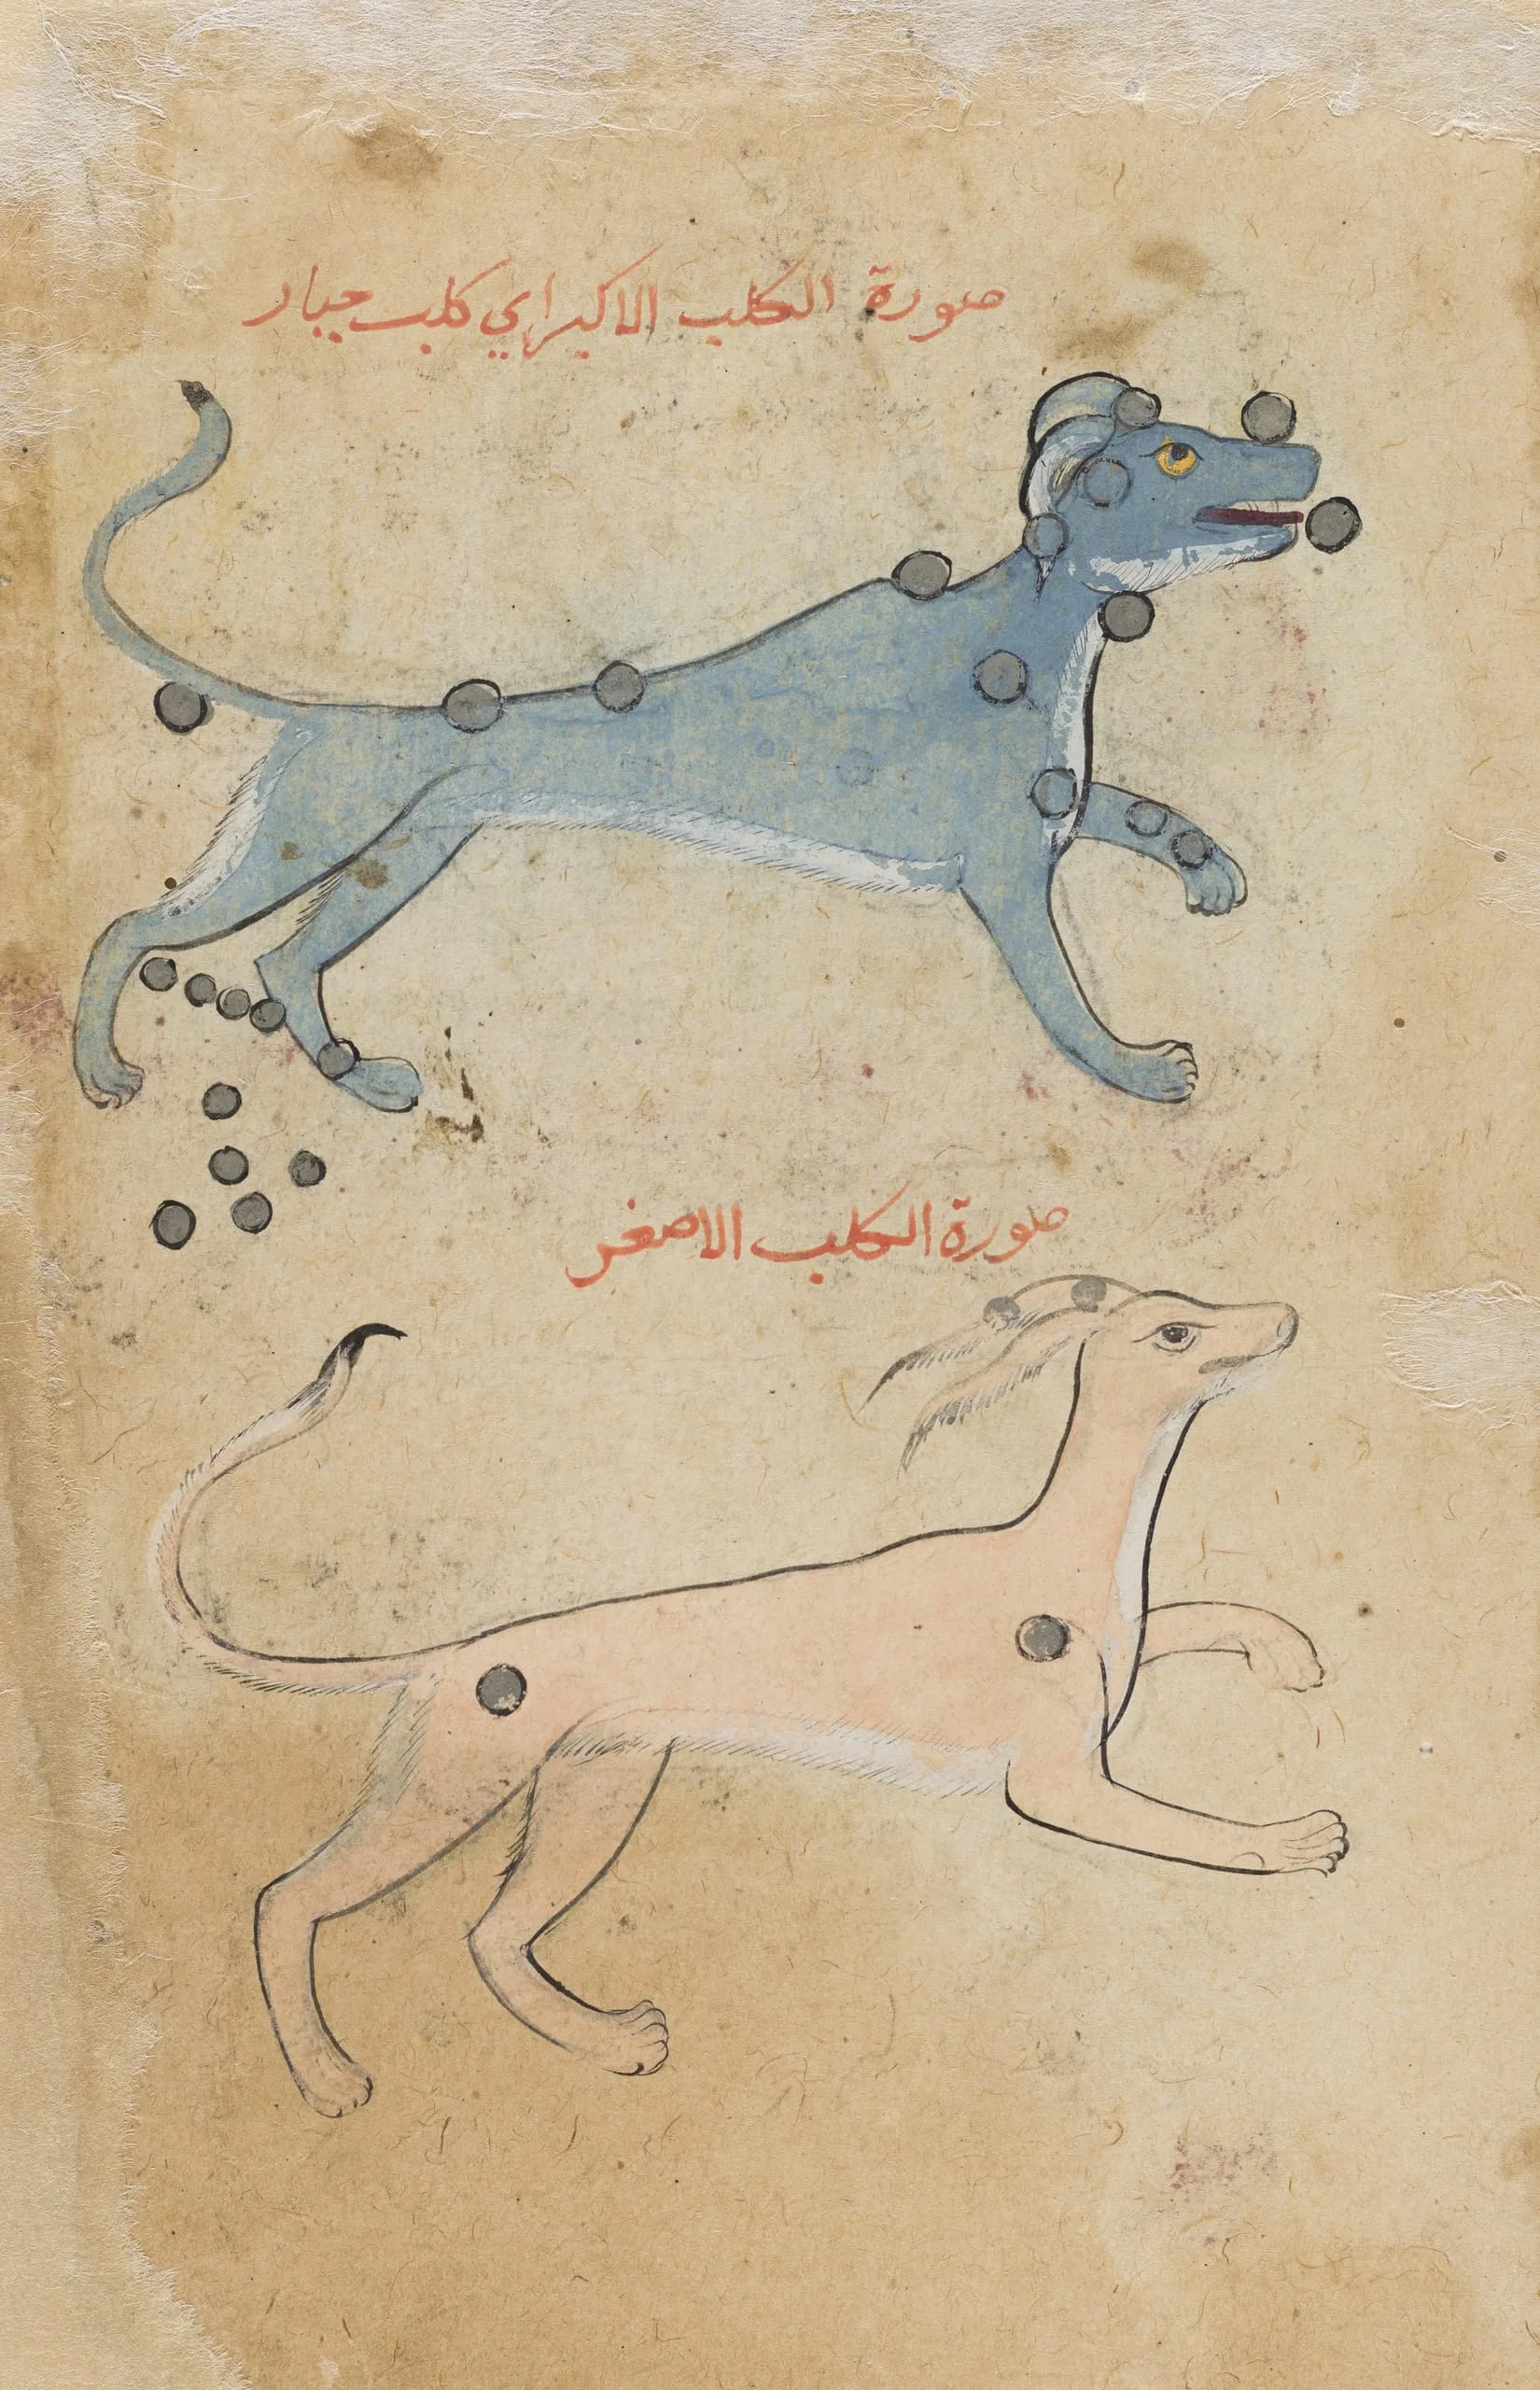 صورة الكلب الاكبر اي كلب جبار
صورة الكلب الاصغر